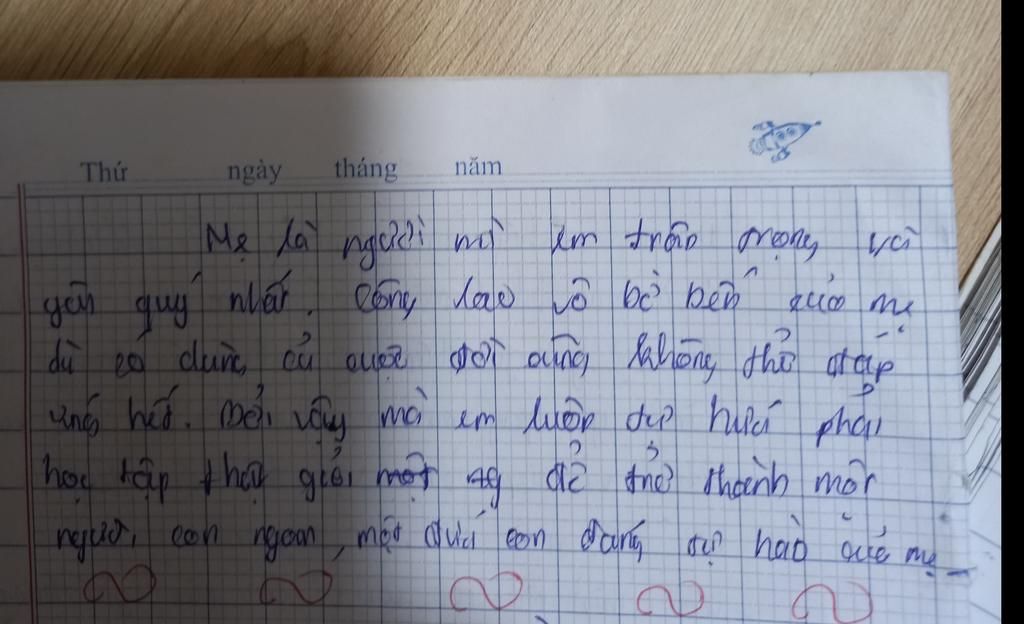 Thứ ngày tháng năm
Mẹ là người mà em trân trọng và
yêu quý nhất. Công lao vô bờ bến của mẹ
dù có dùng cả cuộc đời cũng không thể đáp
ứng hết. Bởi vậy mà em luôn tự hứa phải
học tập thật giỏi một để trở thành một
người con ngoan, một đứa con đáng tự hào của mẹ